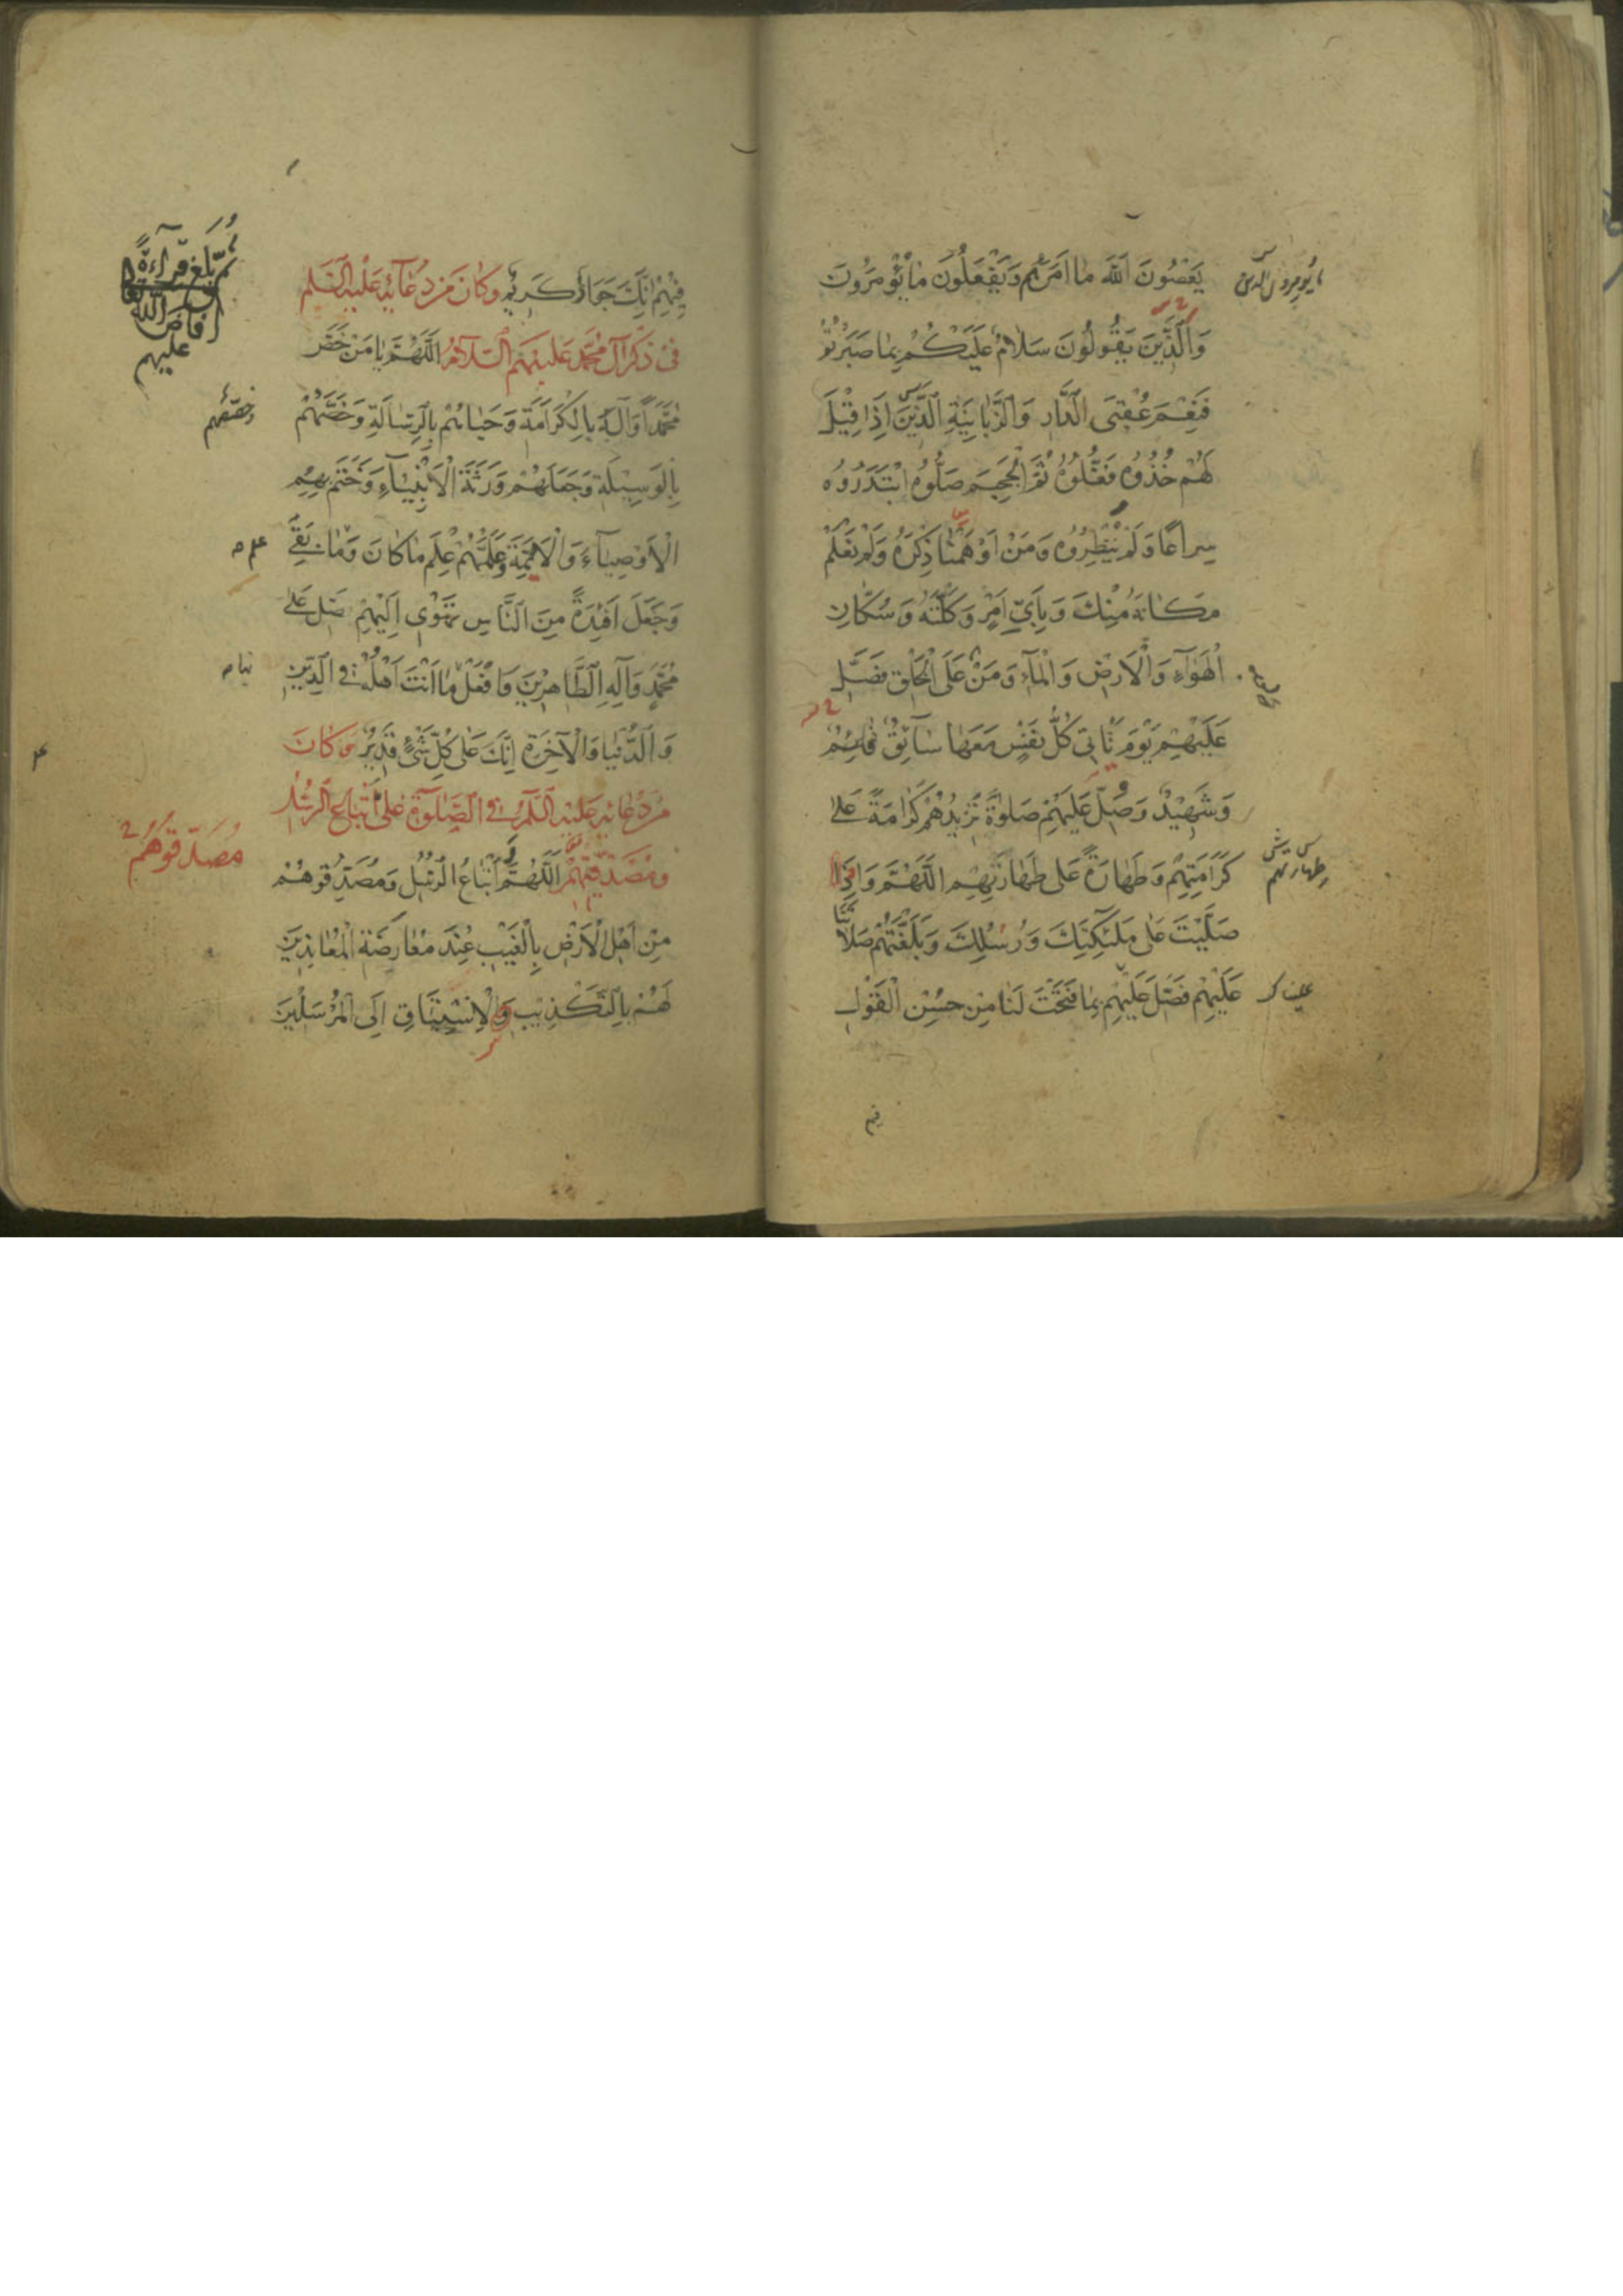 يَعْصُونَ اللّٰهَ مٰا اَمَرَهُمْ وَيَفْعَلُونَ مٰا يُؤْمَرُونَ
وَالَّذِينَ يَقُولُونَ سَلٰامٌ عَلَيْكُمْ بِمٰا صَبَرْتُمْ
فَنِعْمَ عُقْبَى الدَّارِ وَالزَّبٰانِيَةِ الَّذِينَ اِذٰا قِيْلَ
لَهُمْ خُذُوُه فَغُلُّوُهُ ثُمَّ الْجَحِيمَ صَلُّوُهُ ابْتَدَرُوُه
سِراعًا وَلَمْ يُنْظِرُوُه وَمَنْ اَوْهَمْنٰا ذِكْرَهُ وَلَمْ نَعْلَمْ
مَكٰانَهُ مِنْكَ وَبِاَيِّ اَمْرٍ وَكَّلْتَهُ وَسُكّٰانِ
الْهَوٰآءِ وَالْاَرْضِ وَالْمٰآءِ وَمَنْ عَلَى الْخَلْقِ فَصَلِّ
عَلَيْهِمْ يَوْمَ تَأْتِي كُلُّ نَفْسٍ مَعَهٰا سٰآئِقٌ قٰائِمٌ
وَشَهِيْدٌ وَصَلِّ عَلَيْهِمْ صَلوٰةً تَزِيْدُهُمْ كَرٰامَةً عَلٰى
كَرٰامَتِهِمْ وَطَهٰارَةً عَلىٰ طَهٰارَتِهِمْ اللّٰهُمَّ وَاِذٰا
صَلَّيْتَ عَلىٰ مَلٰئِكَتِكَ وَرُسُلِكَ وَبَلَّغْتَهُمْ صَلٰاتَنٰا
عَلَيْهِمْ فَصَلِّ عَلَيْهِمْ بِمٰا فَتَحْتَ لَنٰا مِنْ حُسْنِ الْقَوْلِ
طهارتهم
فِيْهِمْ اِنَّكَ جَوٰادٌ كَرِيْمٌ وَكٰانَ مِنْ دُعٰآئِهِ عَلَيْهِ السَّلٰم
فى ذِكْرِ آلِ مُحَمَّدٍ عَلَيْهِمُ السَّلٰامُ اَللّٰهُمَّ يٰا مَنْ خَصَّ
مُحَمَّدًا وَآلَهُ بِالْكَرٰامَةِ وَحَبٰاهُمْ بِالرِّسٰالَةِ وَخَصَّهُمْ
بِالْوَسِيْلَةِ وَجَعَلَهُمْ وَرَثَةَ الْاَنْبِيٰآءِ وَخَتَمَ بِهِمُ
الْاَوْصِيٰآءَ وَالْاَئِمَّةَ وَعَلَّمَهُمْ عِلْمَ مٰا كٰانَ وَمٰا بَقِىَ
وَجَعَلَ اَفْئِدَةً مِنَ النَّاسِ تَهْوٰى اِلَيْهِمْ صَلِّ عَلىٰ
مُحَمَّدٍ وَآلِهِ الطَّاهِرِيْنَ وَافْعَلْ بِنٰا مٰا اَنْتَ اَهْلُهُ فِى الدِّيْنِ
وَالدُّنْيٰا وَالْآخِرَةِ اِنَّكَ عَلىٰ كُلِّ شَىْءٍ قَدِيرٌ وَكٰانَ
مِنْ دُعٰائِهِ عَلَيْهِ السَّلٰمُ فِى الصَّلٰوةِ عَلىٰ اَتْبٰاعِ الرُّسُلِ
وَمُصَدِّقِيْهِمْ اَللّٰهُمَّ وَاَتْبٰاعُ الرُّسُلِ وَمُصَدِّقُوهُمْ
مِنْ اَهْلِ الْاَرْضِ بِالْغَيْبِ عِنْدَ مُعٰارَضَةِ الْمُعٰانِدِيْنَ
لَهُمْ بِالتَّكْذِيْبِ وَالْاِشْتِيٰاقِ اِلَى الْمُرْسَلِيْنَ
ثُمَّ بَلَغَ قِرٰآءَةً
اَفٰاضَ اللّٰه
عليهم
مُصَدِّقُوهُمْ